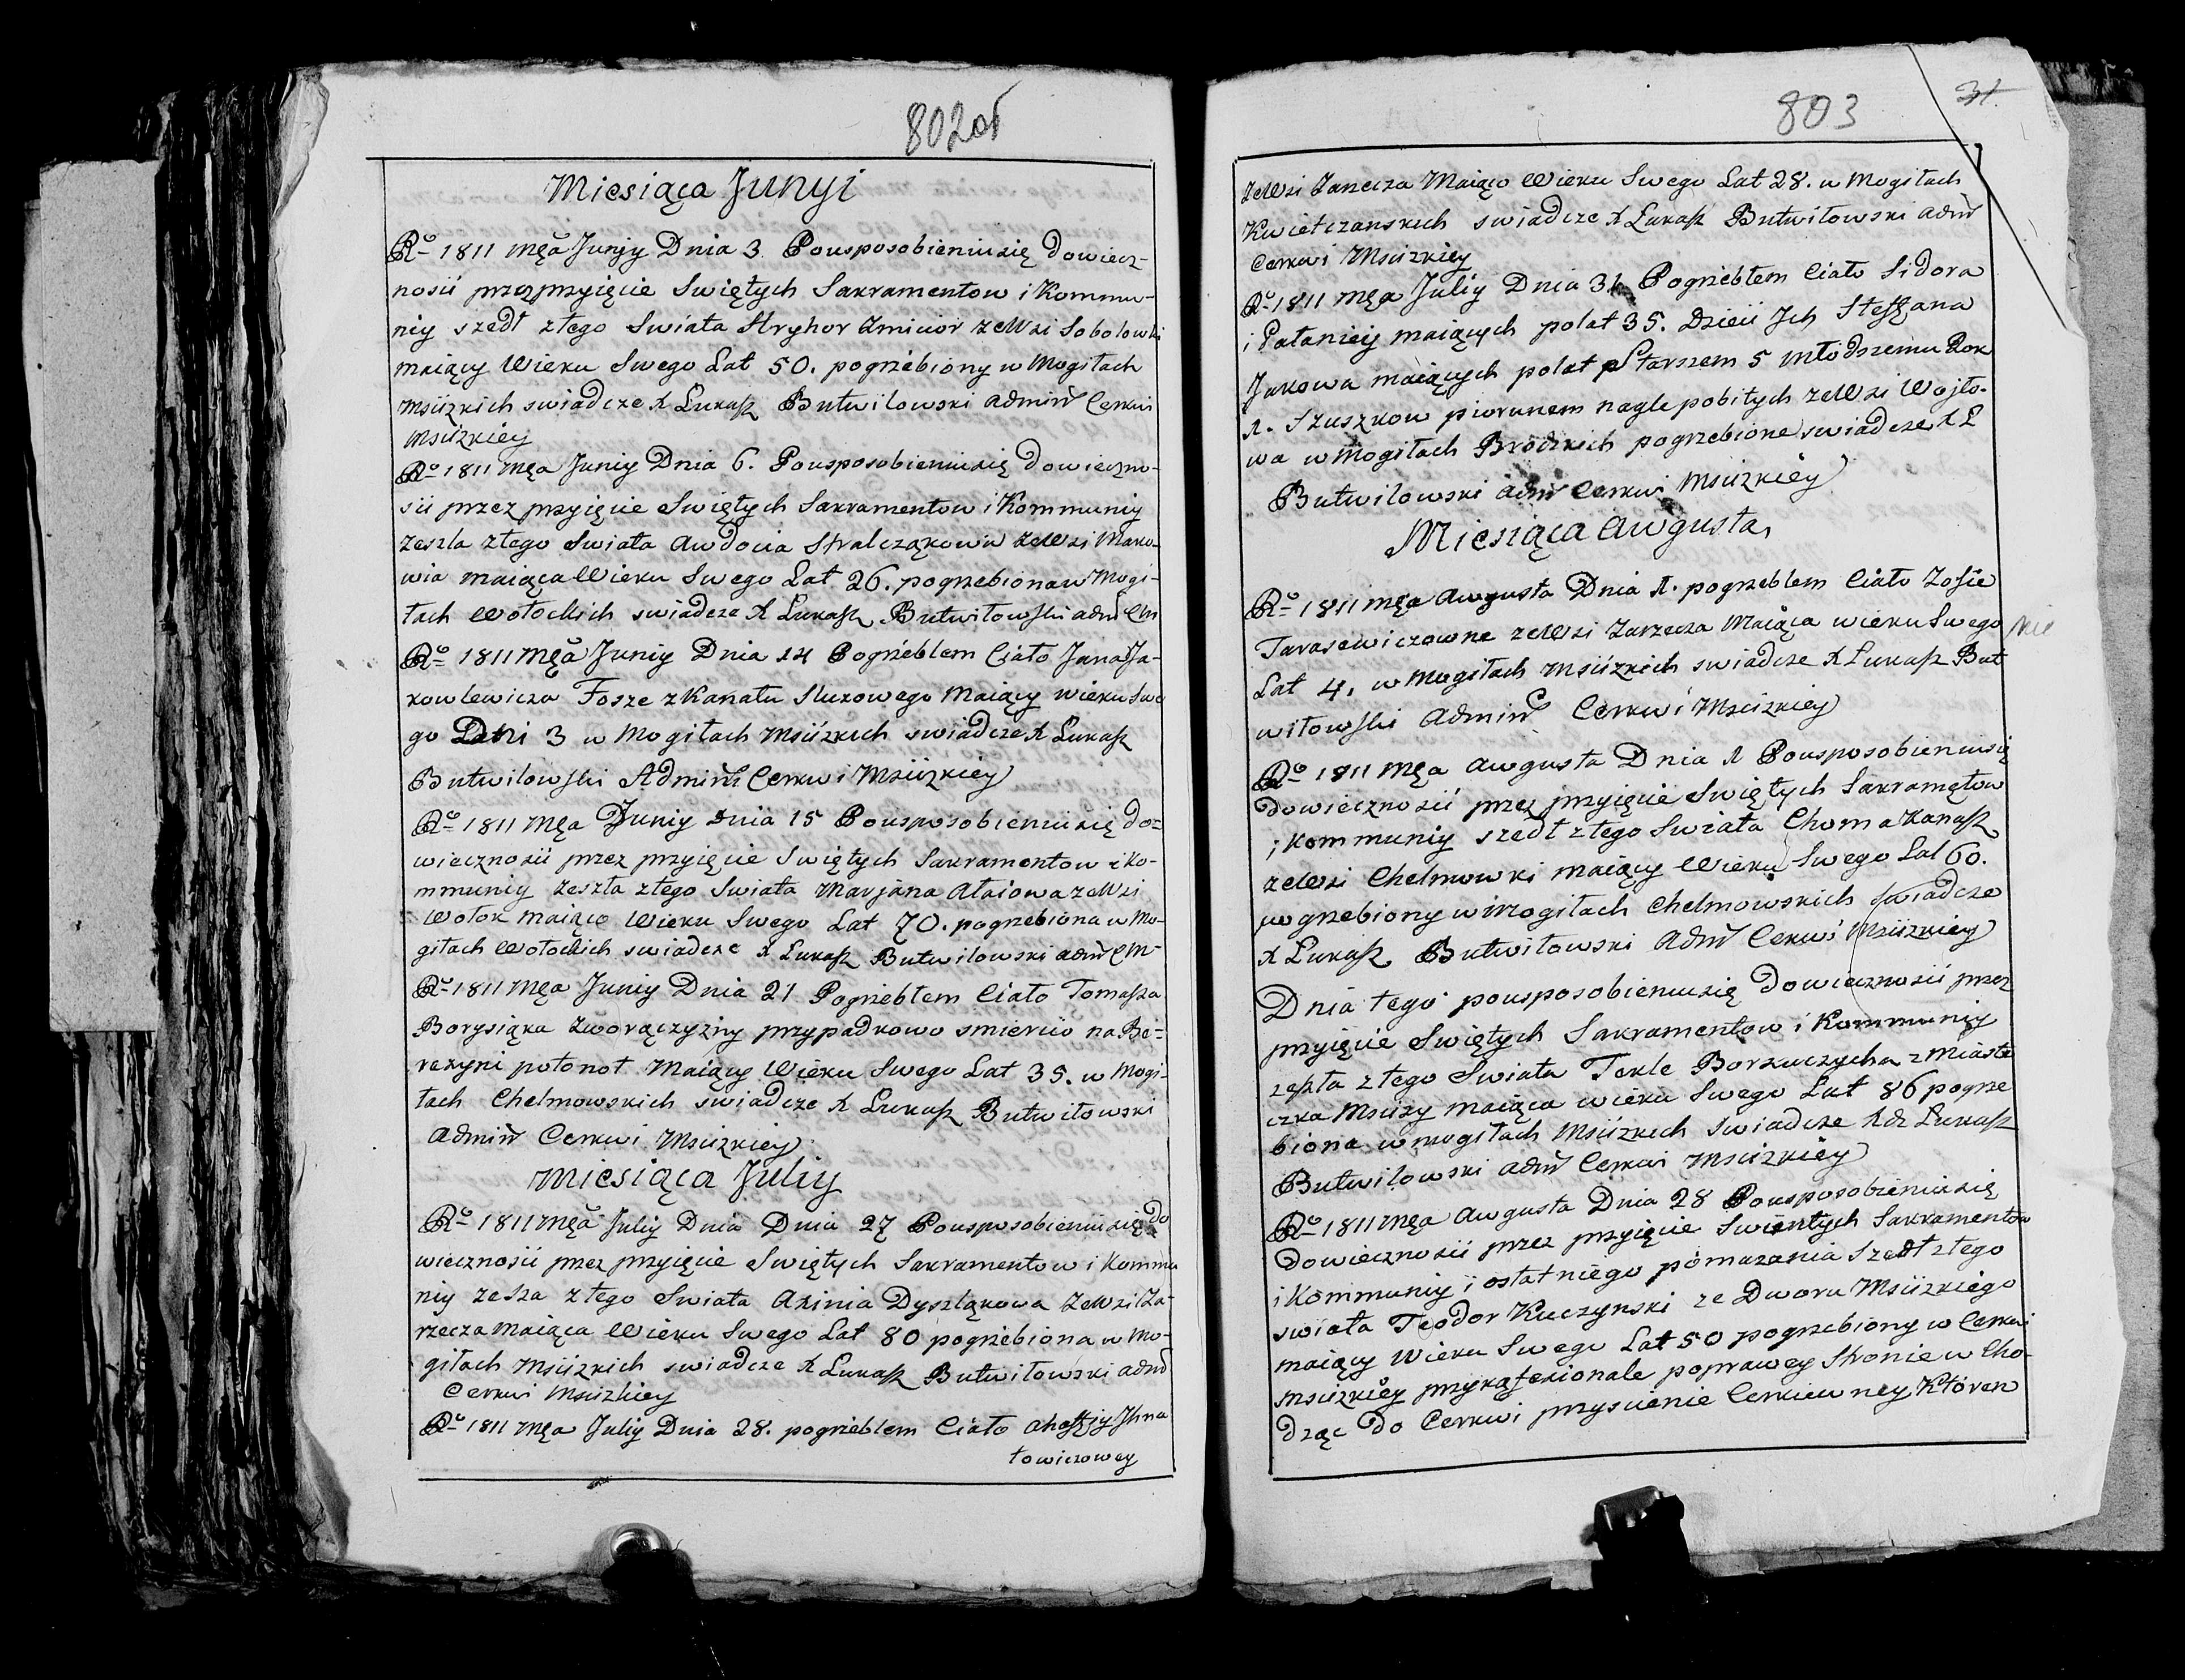 802об
Miesiąca Junyi
Rº 1811 Męa Junjy Dnia 3 Pousposobieniusię dowiecz-
nosii przezprzyięcie Swiętych Sakramentow i Kommu-
niy szedł ztego Swiata Hryhor zeWsi Sobolowki
maiący Wieku Swego Lat 50. pogrzebiony w Mogiłach
Msiizkich swiadcze X Łukasz Butwilowski Admin Cerkwi
Msiizkiey
Rº 1811 Męa Juniy Dnia 6. Pousposobieniusię dowieczno-
sii przez przyięcie Swiętych Sakramentow i Kommuniy
zeszla ztego Swiata Awdocia zeWsi Mako-
wia maiąca Wieku Swego Lat 26. pogrzebiona w Mogi-
łach Wołockich swiadcze X Łukasz Butwiłowski adm CM
Rº 1811 Męa Juniy Dnia 14 Pogrzeblem Ciało Jana Ja-
kowlewicza Fosze z Kanału Sluzowego Maiący wieku Swe
go Dni 3 w Mogiłach Msiizkich swiadcze X Łukasz
Butwilowski Admin Cerkwi Msiizkiey
Rº 1811 Męa Juniy Dnia 15 Pousposobieniusię do=
wiecznosii przez przyięcie Swiętych Sakramentow i Ko-
mmuniy zeszła ztego Swiata Marjana Ałaiowa zeWsi
Wołok maiąca Wieku Swego Lat 70. pogrzebiona w Mo-
giłach Wołockich swiadcze X Łukasz Butwilowski adm CM
Rº 1811 Męa Juniy Dnia 21 Pogrzebłem Ciało Tomasza
Borysiąka przypadkowo smierciio na Be-
rezyni potonoł Maiący Wieku Swego Lat 35. w Mogi-
łach Chelmowskich swiadcze X Łukasz Butwiłowski
Admin Cerkwi Msiizkiey
Miesiąca Juliy
Rº 1811 Męa Juliy Dnia Dnia 27 Pousposobieniusię do
wiecznosii przez przyięcie Swiętych Sakramentow i Kommu
niy zesza ztego Swiata Axinia Dyszląkowa zeWsi Za-
rzecza maiąca Wieku Swego Lat 80 pogrzebiona w Mo-
giłach Msiizkich swiadcze X Łukasz Butwiłowski adm
Cerkwi Msiizkiey
Rº 1811 Męa Juliy Dnia 28. pogrzeblem Ciało Ahaffiy Ihna
towiczowey
803
31.
zeWsi Maiąco Wieku Swego Lat 28. w Mogiłach
Kwietczanskich swiadcze X Łukasz Butwiłowski adm
Cerkwi Msiizkiey
Rº 1811 Męa Juliy Dnia 31 Pogrzebłem Ciało Sidora
i Pałaniey maiących polat 35. Dzieii Jch Steffana
Jakowa maiących polat Starszem 5 młodszemu Rok
1. Szuszkow piorunem nagle pobitych zeWsi Woyto-
wa w Mogiłach Brodzkich pogrzebione swiadcze X Ł
Butwilowski adm Cerkwi Msiizkiey
Miesiąca Awgusta
Rº 1811 Męa Awgusta Dnia 1. pogrzeblem Ciało Zofie
Tarasewiczowne zeWsi Zarzecza Maiąca wieku Swego
Lat 4. w Mogiłach Msiizkich swiadcze X Łukasz But
wiłowski Admin Cerkwi Msiizkiey
Rº 1811 Męa Awgusta Dnia 1 Pousposobieniusię
dowiecznosii przez przyięcie Swiętych Sakramętow
i Kommuniy szedł ztego Swiata Choma Kanasz
zeWsi Chelmowki maiący Wieku Swego Lat 60.
pogrzebiony w Mogiłach Chelmowskich swiadcze
X Łukasz Butwiłowski Adm Cerkwi Msiizkiey
Dnia tego pousposobieniusię dowiecznosii przez
przyięcie Swiętych Sakramentow i Kommuniy
zeszła ztego Swiata Tekle z Miaste
czka Msiizy maiąca wieku Swego Lat 86 pogrze
biona w mogiłach Msiizkich swiadcze Xdz Łukasz
Butwilowski adm Cerkwi Msiizkiey
Rº 1811 Męa Awgusta Dnia 28 Pousposobieniusię
dowiecznosii przez przyięcie Swientych Sakramentow
i Kommuniy i ostatniego pomazania szedł ztego
swiata Teodor Kuczynski ze Dworu Msiizkiego
maiący Wieku Swego Lat 50 pogrzebiony w Cerkwi
Msiizkiey przykafesionale poprawey Stronie w Cho-
dząc do Cerkwi przyscienie Cerkiewney Któren